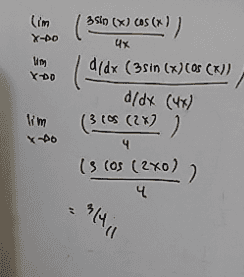 lim x→0 (3sin(x) cos(x) / 4x)
lim x→0 (d/dx (3sin(x)(cos(x)) / d/dx (4x)
lim x→0 (3 cos (2x) / 4)
(3 cos (2x0) / 4)
= 3/4 //